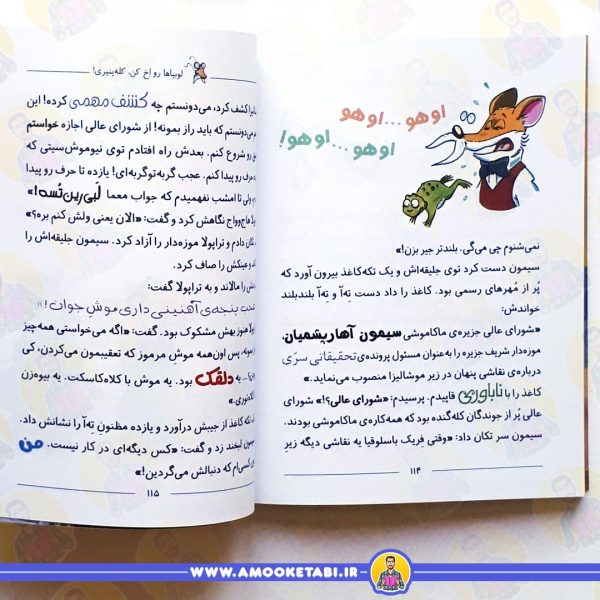 اوهو...اوهو
اوهو...اوهو!
نمی‌شنوم چی می‌گی. بلندتر جیر بزن!»
سیمون دست کرد توی جلیقه‌اش و یک تکه‌کاغذ بیرون آورد که
پُر از مُهرهای رسمی بود. کاغذ را داد دست تِه‌آ و تِه‌آ بلندبلند
خواندش:
«شورای عالی جزیره‌ی ماکاموشی سیمون آهارپشمیان،
موزه‌دار شریف جزیره را به‌عنوان مسئول پرونده‌ی تحقیقاتی سرّی
درباره‌ی نقاشی پنهان در زیر موشالیزا منصوب می‌نماید.»
کاغذ را با ناباوری قاپیدم. پرسیدم: «شورای عالی؟!» شورای
عالی پُر از جوندگان کله‌گنده بود که همه‌کاره‌ی ماکاموشی بودند.
سیمون سر تکان داد: «وقتی فِریک باسلوفیا یه نقاشی دیگه زیرِ
۱۱۴
لوبیاها رو اِخ کن، کله‌پنیری!
کشف کرد، می‌دونستم چه کشف مهمی کرده! این
می‌دونستم که باید راز بمونه! از شورای عالی اجازه خواستم
رو شروع کنم. بعدش راه افتادم توی نیوموش‌سیتی که
حرف رو پیدا کنم. عجب گربه‌توگربه‌ای! یازده تا حرف رو پیدا
ولی تا امشب نفهمیدم که جواب معما لَبی‌رین‌تُسه!»
هاج‌وواج نگاهش کرد و گفت: «الان یعنی ولش کنم بره؟»
دادم و تراپولا موزه‌دار را آزاد کرد. سیمون جلیقه‌اش را
و عینکش را صاف کرد.
را مالاند و به تراپولا گفت:
پنجه‌ی آهنینی داری موشِ جوان!»
هنوز بهش مشکوک بود. گفت: «اگه می‌خواستی همه‌چیز
بمونه، پس اون‌همه موشِ مرموز که تعقیبمون می‌کردن، کی
به دلقک بود. یه موش با کلاه‌کاسکت. یه بیوه‌زن
تکه کاغذ از جیبش درآورد و یازده مظنونِ تِه‌آ را نشانش داد.
لبخند زد و گفت: «کس دیگه‌ای در کار نیست. من
کسی‌ام که دنبالش می‌گردین!»
۱۱۵
WWW.AMOOKETABI.IR